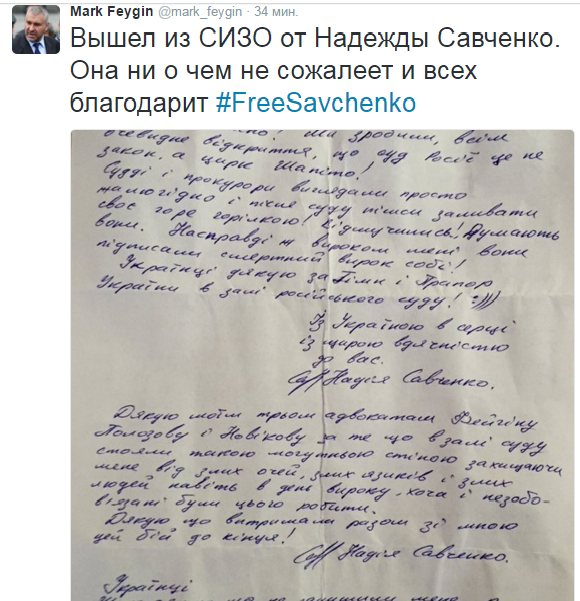 Mark Feygin @mark_feygin · 34 мин.
Вышел из СИЗО от Надежды Савченко.
Она ни о чем не сожалеет и всех
благодарит #FreeSavchenko
зробили, всім
очевидне відкриття, що суд Росії це не
закон, а цирк Шапіто!
Судді і прокурори виглядали просто
жалюгідно і після суду пішли заливати
своє горе горілкою! Відмучились! Думають
вони. Насправді ж вироком мені вони
підписали смертний вирок собі!
Українці дякую за Гімн і Прапор
України в залі російського суду! :)))
Із Україною в серці
із щирою вдячністю
до вас.
Надія Савченко.
Дякую моїм трьом адвокатам Фейгіну
Полозову і Новікову за те що в залі суду
стояли такою могутньою стіною захищаючи
мене від злих очей, злих язиків і злих
людей навіть в день вироку, хоча і незобо-
в'язані були цього робити.
Дякую що витримали разом зі мною
цей бій до кінця!
Надія Савченко.
Українці